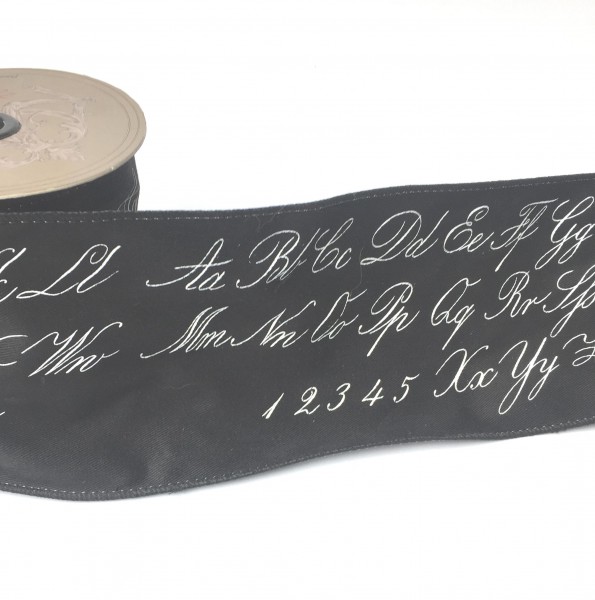 Ll Aa Bb Cc Dd Ee Ff Gg
Ww Mm Nn Oo Pp Qq Rr Ss
1 2 3 4 5 Xx Yy